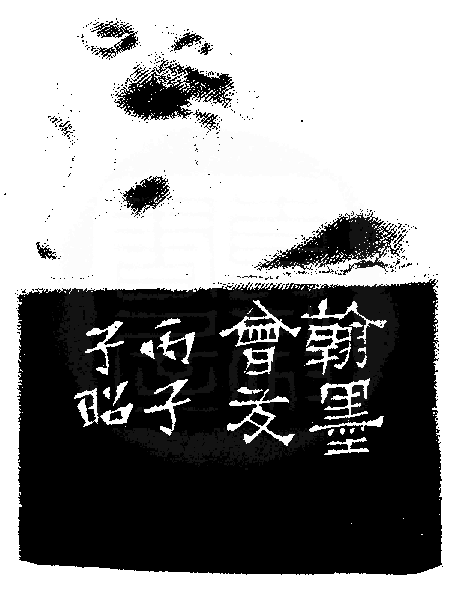 翰墨
會友
丙子
子昭